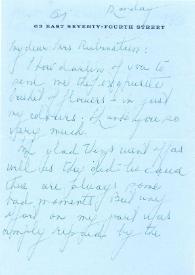 Monday
63 EAST SEVENTY-FOURTH STREET
My dear Mrs Rubinstein:
How darling of you to
send me the exquisite
basket of flowers - in just
my colours: thank you so
very much.
I'm glad things went off as
well as they did because
there are always some
bad moments! But my
effort on my part was
amply repaid by the